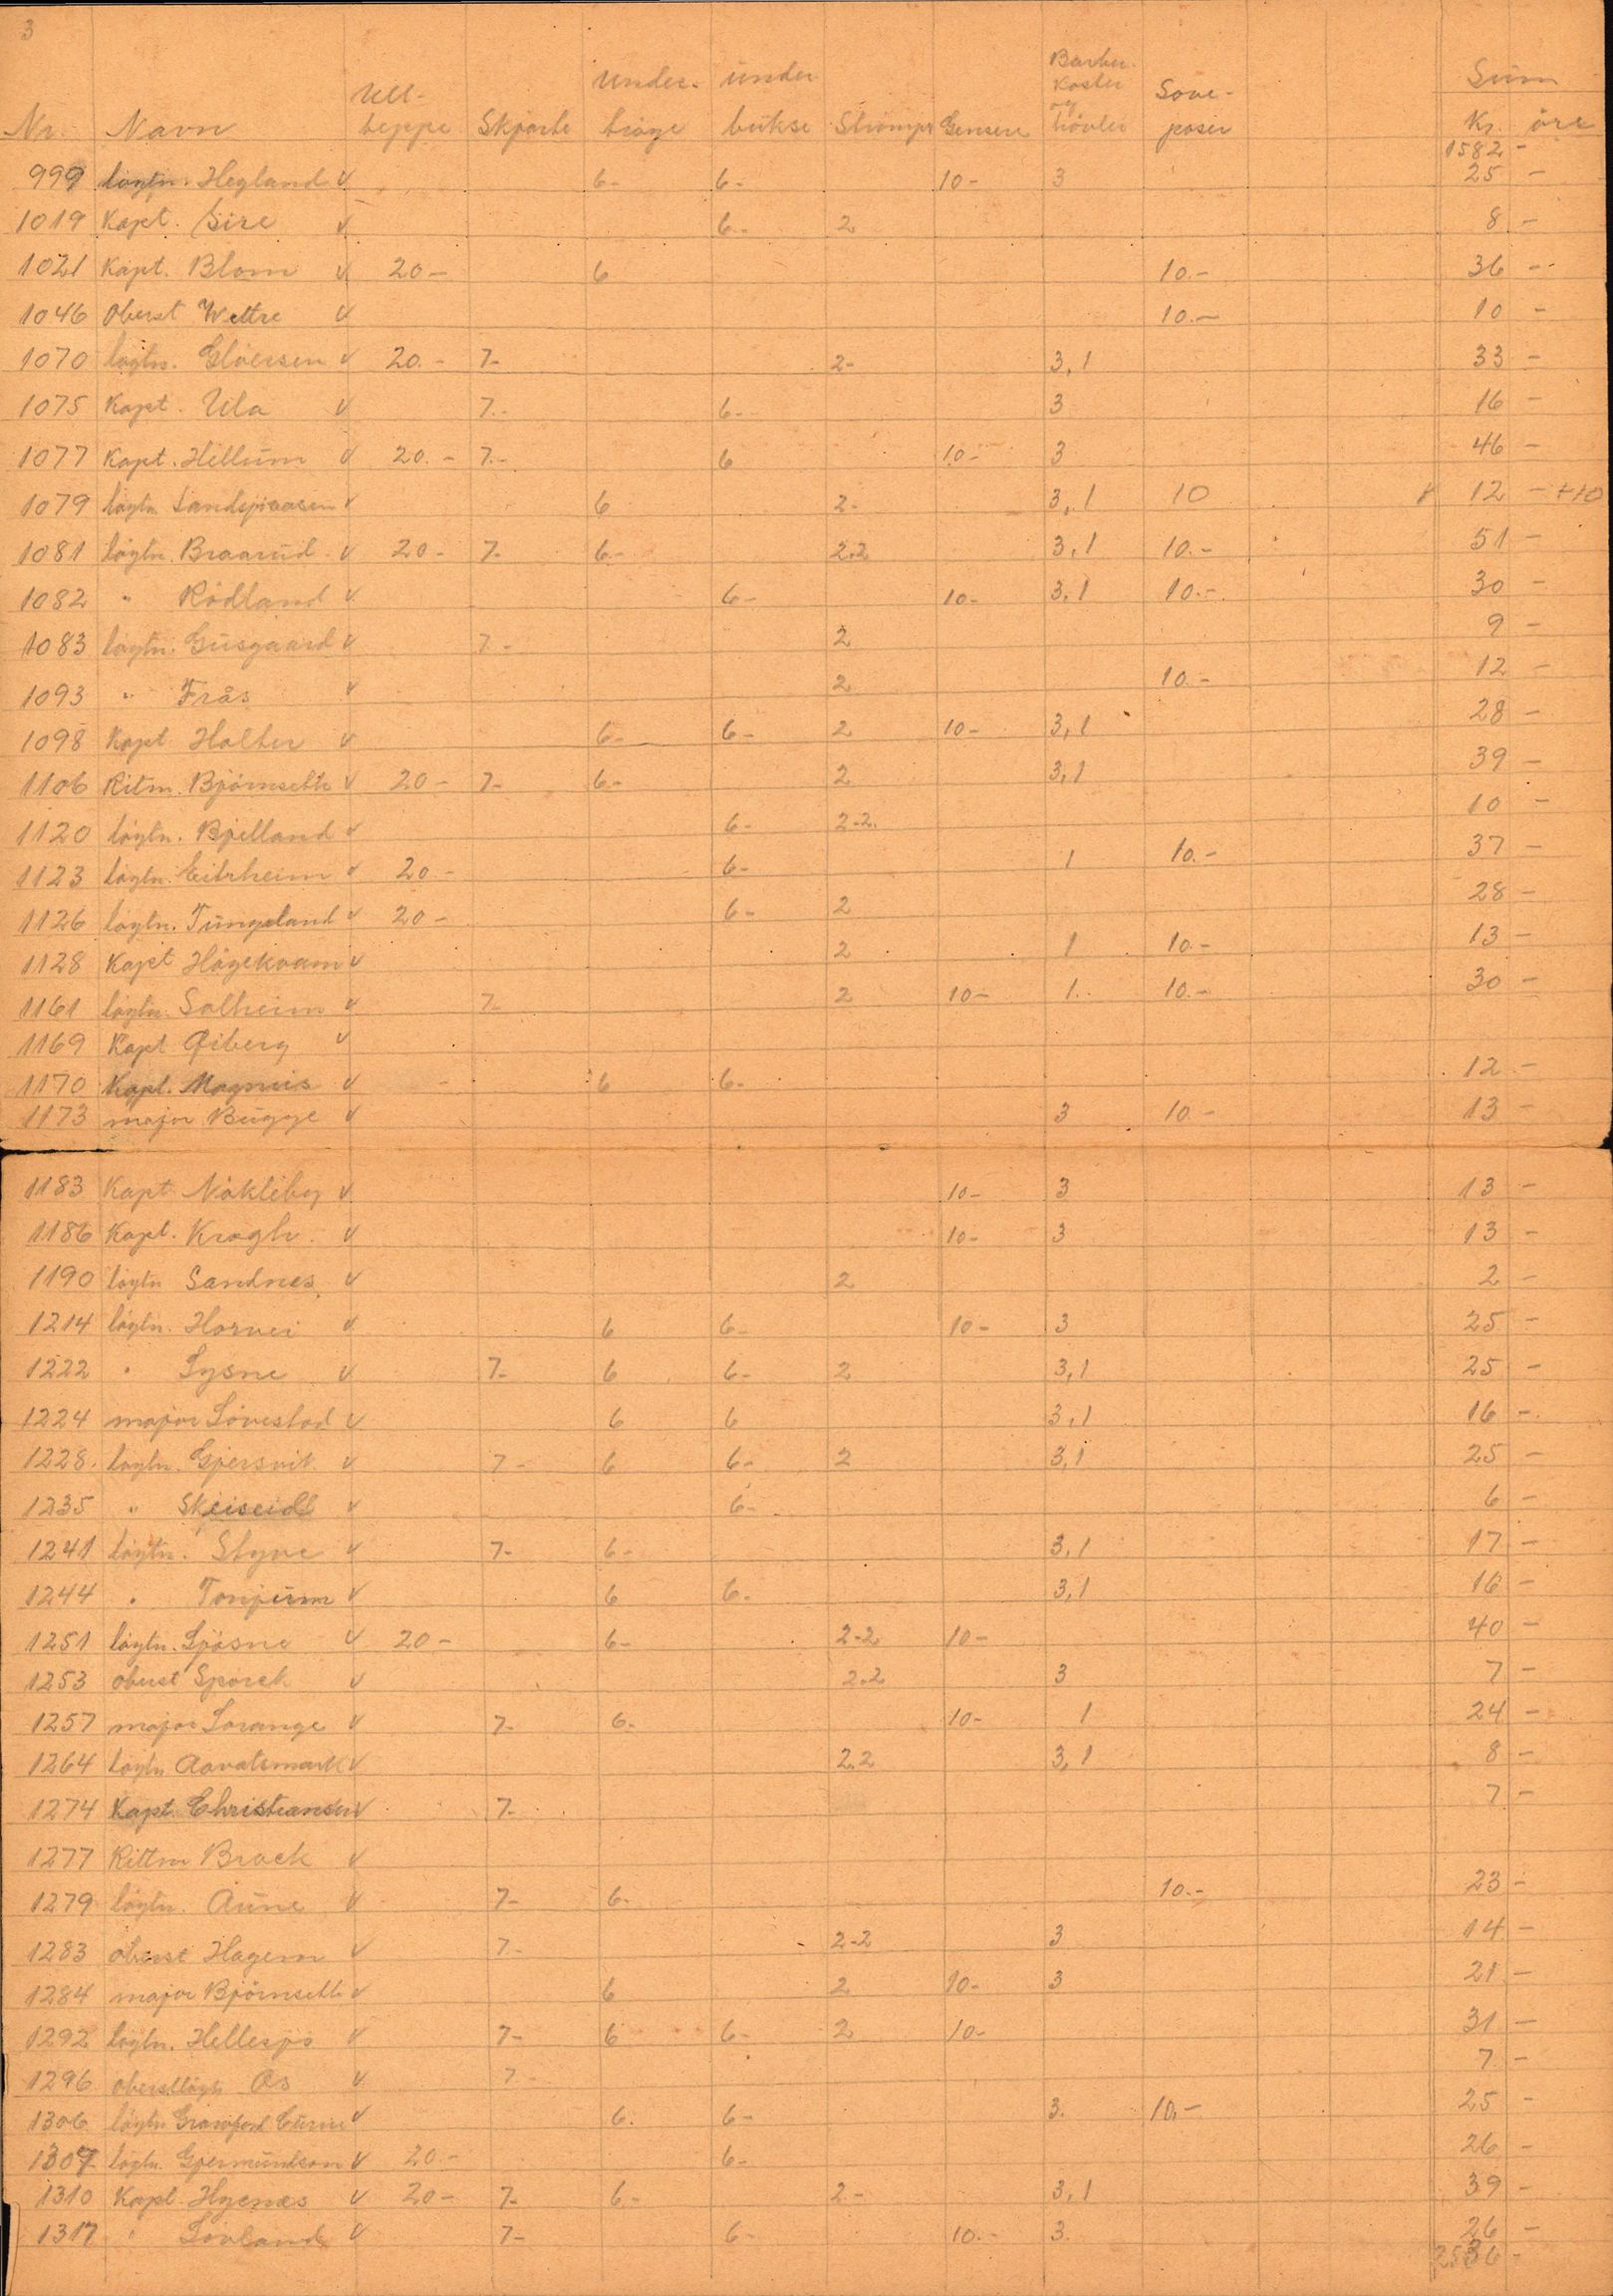 3
Nr. Navn Ull-teppe Skjorte Under-tröye under bukse Strömper Gensere Barber-koster og hövler Sove-poser Sum Kr. öre
1582 -
999 löytn. Hegland v 6- 6- 10- 3 25 -
1019 Kapt. Sire v 6- 2 8 -
1021 Kapt. Blom v 20- 6 10.- 36 -
1046 Oberst Wettre v 10.- 10 -
1070 löytn. Glöersen v 20.- 7- 2- 3,1 33 -
1075 Kapt. Ula v 7.- 6- 3 16 -
1077 Kapt. Hillum v 20.- 7.- 6 10- 3 46 -
1079 löytn v 6 2- 3,1 10 12 - +10
1081 löytn. Braarud v 20- 7- 6- 2.2 3,1 10.- 51 -
1082 " Rödland v 6- 10- 3,1 10.- 30 -
1083 löytn. Gusgaard v 7.- 2 9 -
1093 " Frås v 2 10.- 12 -
1098 Kapt Holter v 6- 6- 2 10- 3,1 28 -
1106 Ritm. Björnseth v 20- 7- 6- 2 3,1 39 -
1120 löytn. Bjelland v 6- 2-2. 10 -
1123 löytn. Eitrheim v 20- 6- 1 10.- 37 -
1126 löytn. Tungeland v 20- 6- 2 28 -
1128 Kapt Högekvam v 2 1 10.- 13 -
1161 löytn. Solheim v 7- 2 10- 1. 10.- 30 -
1169 Kapt Øiberg v
1170 Kapt. Magnus v 6 6- 12 -
1173 major Bugge v 3 10- 13 -
1183 Kapt Nökleby v 10- 3 13 -
1186 Kapt. Krogh. v 10- 3 13 -
1190 löytn Sandnes v 2 2 -
1214 löytn. Horvei v 6 6- 10- 3 25 -
1222 " Lysne v 7- 6 6- 2 3,1 25 -
1224 major Lövestad v 6 6 3,1 16 -
1228. löytn. Gjersvik v 7- 6 6- 2 3,1 25 -
1235 " Skeiseid v 6- 6 -
1241 löytn. Styve v 7- 6- 3,1 17 -
1244 " Tonjum v 6 6. 3,1 16 -
1251 löytn. Ljösne v 20- 6- 2-2 10- 40 -
1253 oberst Spörck v 2.2 3 7 -
1257 major Lorange v 7- 6- 10- 1 24 -
1264 löytn Aavatsmark v 2.2 3,1 8 -
1274 Kapt. Christiansen v 7- 7 -
1277 Rittm Brock v
1279 löytn. Aune v 7- 6- 10.- 23 -
1283 oberst Hagem v 7- 2-2 3 14 -
1284 major Björnseth v 6 2 10- 3 21 -
1292 löytn. Hellesjö v 7- 6 6- 2 10- 31 -
1296 oberstlöytn Ås v 7- 7 -
1306 löytn v 6. 6- 3. 10.- 25 -
1307 löytn. Gjermundson v 20- 6- 26 -
1310 Kapt. Hyenæs v 20- 7- 6- 2- 3,1 39 -
1317 " Lövland v 7- 6- 10.- 3. 26 -
2536 -